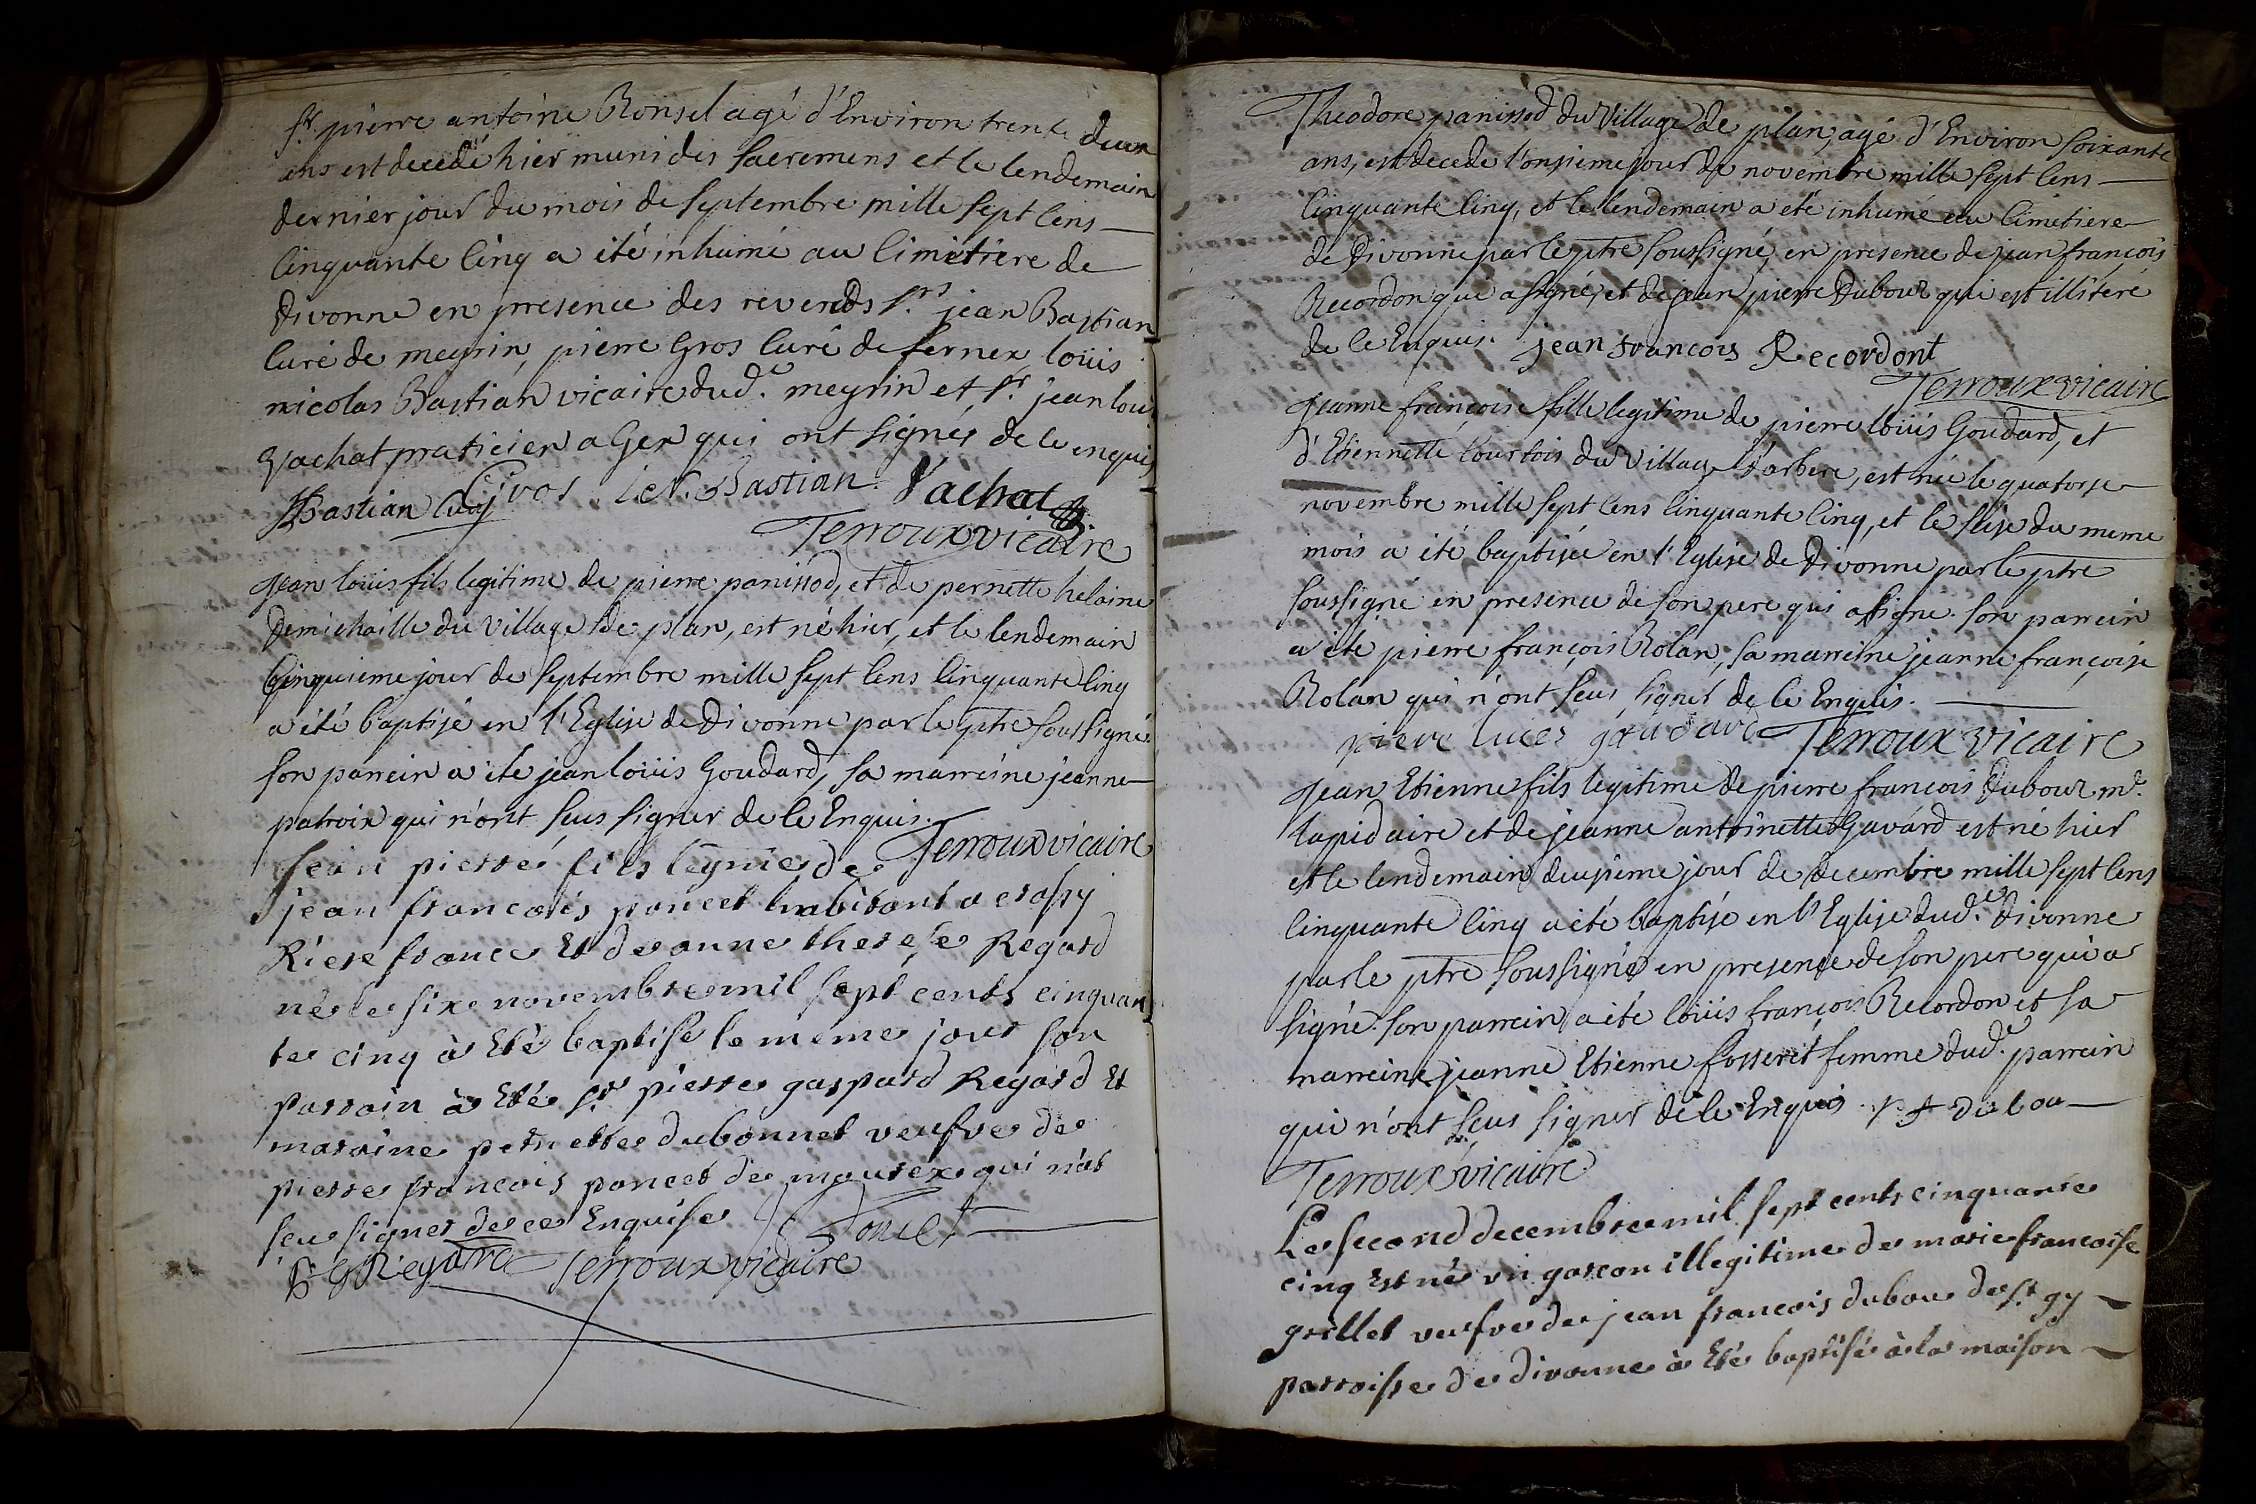 Sr. pierre antoine Ronsel agé d'Environ trente deux
ans est decedé hier muni des sacremens et le lendemain
dernier jour du mois de septembre mille sept Cens
Cinquante Cinq a été inhumé au Cimetiere de
divonne en presence des reverends srs. jean Bastian
Curé de meyrin, pierre Gros Curé de fernex, loüis
nicolas Bastian vicaire dud.e meyrin et sr. jean louis
Vachat praticien a Gex qui ont signés de ce enquis
JBastian Curé Gros Bastian Vachat
Terroux vicaire
Jean loüis fils legitime de pierre panissod, et de pernette helaine
Demichaille du village de plan, est né hier, et le lendemain
Cinquieme jour de septembre mille sept Cens Cinquante Cinq
a été baptisé en l'Eglise de Divonne par le ptre soussigné
son parrein a été jean loüis Goudard, sa marreine jeanne
patroix qui n'ont seus signer de ce Enquis.
Terroux vicaire
Jean pierre fils de
jean francois poncet habitant a crassy
Riere france Et de anne therese Regard
né le six novembre mil sept cents cinquan
te cinq à Eté baptisé le meme jour son
parrain à Eté sr pierre gaspard Regard Et
maraine pernette dubonnet veufve de
pierre francois poncet de mourex qui n'at
seu signer de ce Enquise Poncet
P G Regard Terroux vicaire
Theodore panissod du Village de plan, agé d'Environ soixante
ans, est decede l'onsieme jour de novembre mille sept Cens
Cinquante Cinq, et le lendemain a été inhumé au Cimetiere
de Divonne par le ptre soussigné, en presence de jean françois
Recordon que a signé, et de jean pierre Dubouz qui est illiteré
de ce Enquis. jean francois Recordont
Terroux vicaire
Jeanne françoise fille legitime de pierre loüis Goudard, et
d'Etiennette Courtois du village d'arbere, est née le quatorse
novembre mille sept Cens Cinquante Cinq, et le seise du meme
mois a été baptisée en l'Eglise de Divonne par le ptre
soussigné en presence de son pere qui a signe. son parrein
a été pierre françois Rolan, sa marreine jeanne françoise
Rolan qui n'ont seus signer de ce Enquis.
piere lues goudard Terroux vicaire
Jean Etienne fils legitime de pierre francois Dubouz m.d
lapidaire et de jeanne antoinette Gavard est né hier
et le lendemain deusieme jour de decembre mille sept Cens
Cinquante Cinq a été baptisé en l'Eglise dud.e Divonne
par le ptre soussigné en presence de son pere qui a
signé. son parrein a été loüis françois Recordon et sa
marreine jeanne Etienne fosseret femme dud.e parrein
qui n'ont seus signer de ce Enquis. p f dubou
Terroux vicaire
Le second decembre mil sept cents cinquante
cinq Est né un garcon illegitime de marie francoise
grillet veufve de jean francois dubou de st gy
parroisse de divonne à Eté baptisé à la maison